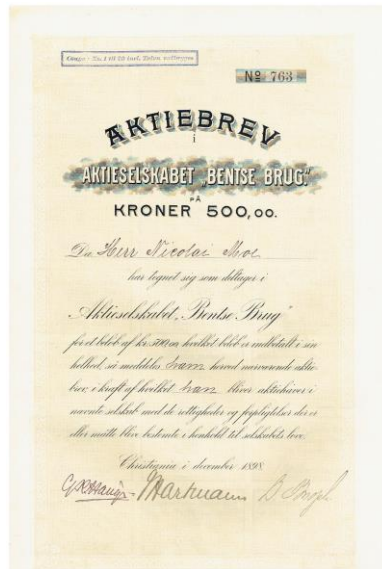 Coupon No. 1 til 20 incl. Talon vedhæftes
No 763
AKTIEBREV
i
AKTIESELSKABET „BENTSE BRUG.”
PÅ
KRONER 500,00.
Da Herr Nicolai Moe
har tegnet sig som deltager i
„Aktieselskabet „Bentse Brug”
for et beløb af kr. 500,00 hvilket beløb er indbetalt i sin
helhed, så meddeles ham herved nærværende aktie-
brev, i kraft af hvilket han bliver aktiehaver i
nævnte selskab med de rettigheder og forpligtelser der er
eller måtte blive bestemte i henhold til selskabets love.
Christiania i december 1898
Hartmann